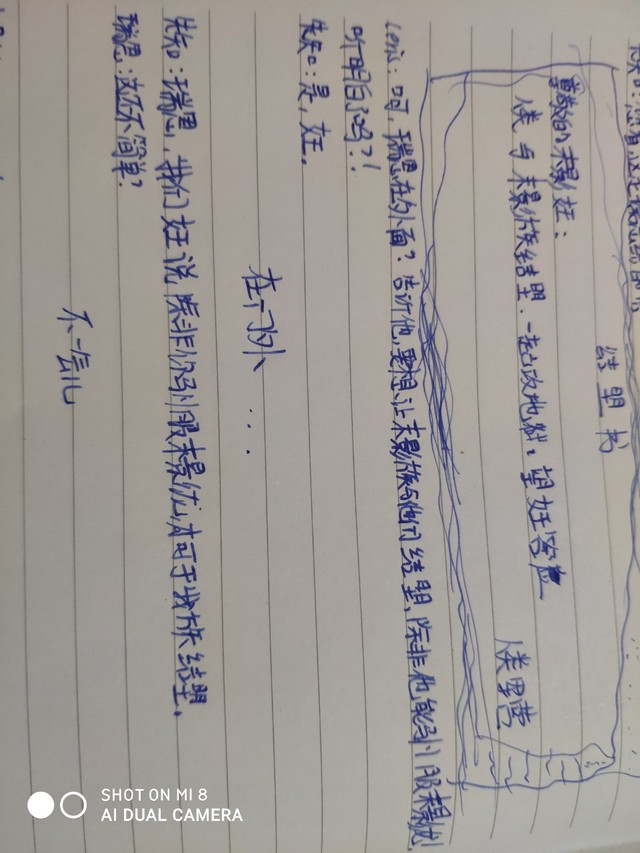 结盟书
尊敬的末影王:
与末影族结盟,一起攻地狱,望王答应
营
Lois:呵,瑞恩在外面?告诉他,要想让末影族与他们结盟,除非他能驯服末影龙!
听明白了吗?!
先知:是,王。
在门外...
先知:瑞恩,我们王说除非你驯服末影龙,才可于我族结盟。
瑞恩:这还不简单?
不一会儿
SHOT ON MI 8
AI DUAL CAMERA